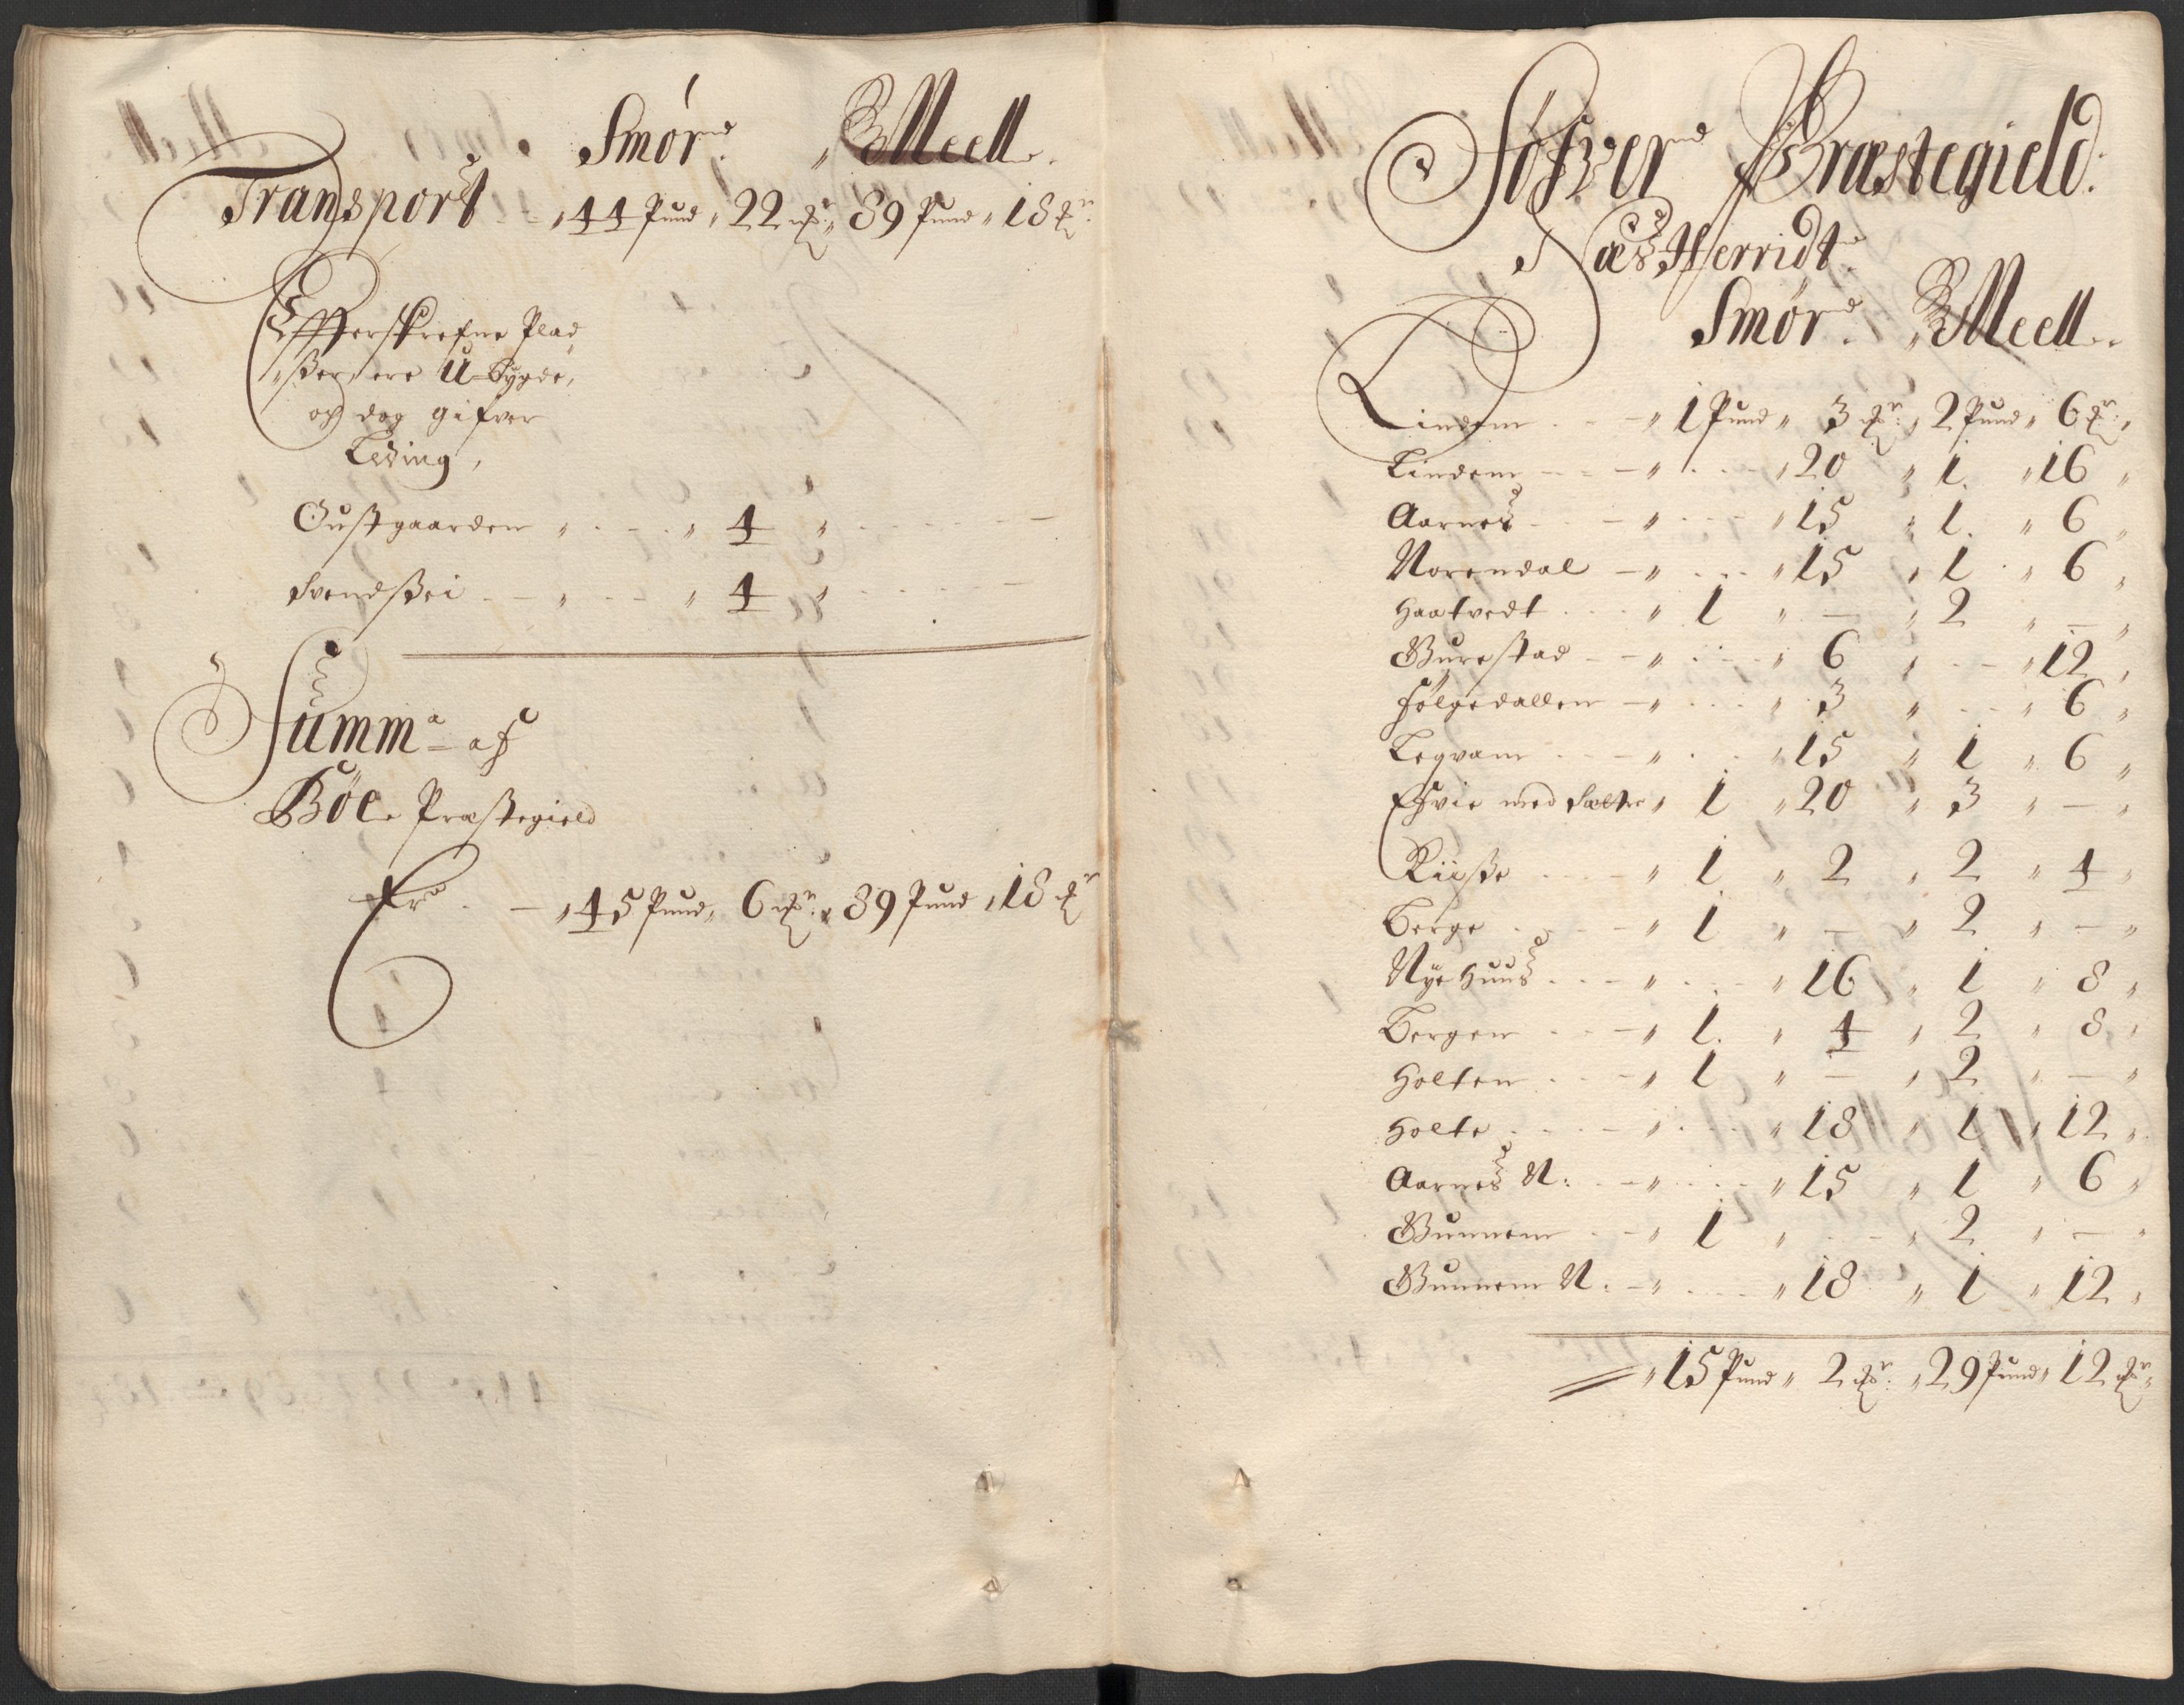 Smør. Meell.
Transport 44 Pund 22 mkr: 89 Pund 18 mkr
Effterskrefne Plad
ßer, ere U-bygde,
och dog gifver
Leding,
Oustgaarden 4
Svendßei 4
Summa af
Böe Præstegield
Er 45 Pund 6 mkr: 89 Pund 18 mkr
Præstegield.
Næs Herridt
Smør. Meell.
Lindem 1 Pund 3 mkr: 2 Pund 6 mkr:
Lindem 20 1. 16
Aarnes 15 1. 6
Norendal 15 1 6
Haatvedt 1 — 2 —
Burestad 6 12
Følgedallen 3 6
Legvam 15 1 6
med Sælte 1 20 3 —
Riiße 1 2 2 4
Berge 1 — 2 —
Nye Huus 16 1 8
Bergen 1. 4 2 8
Holten 1 — 2 —
Holte 18 1 12
Aarnes N: 15 1 6
Gunnem 1 2 —
Gunnem N: 18 1 12
15 Pund 2 mkr: 29 Pund 12 mkr